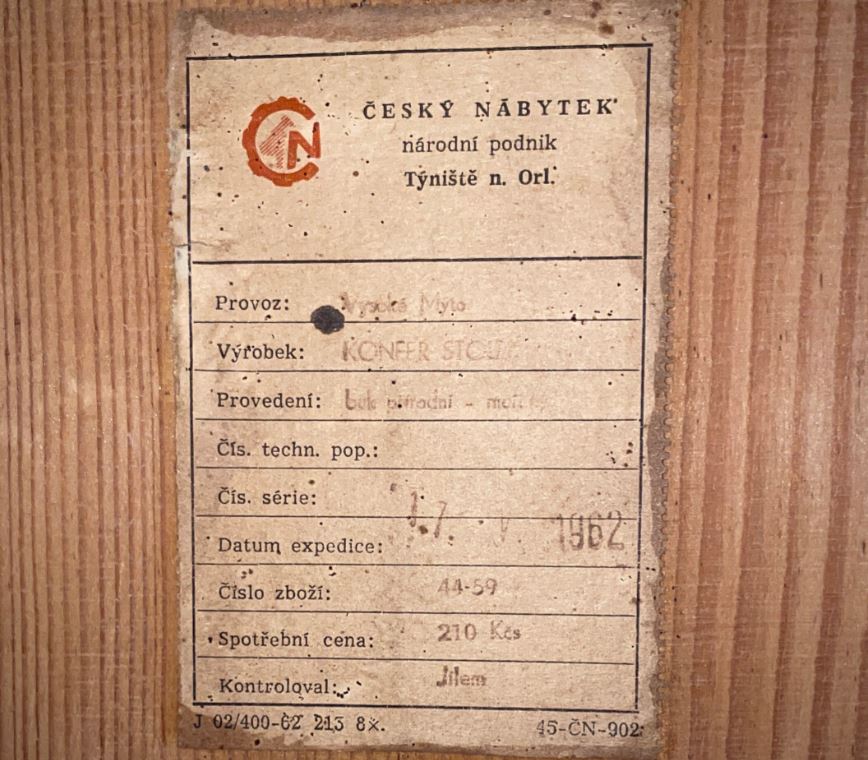 ČN
ČESKÝ NÁBYTEK
národní podnik
Týniště n. Orl.
Provoz: Vysoké Mýto
Výrobek: KONFER STOLEK
Provedení: buk přírodní - moř.
Čís. techn. pop.:
Čís. série:
Datum expedice: 17. V 1962
Číslo zboží: 44-59
Spotřební cena: 210 Kčs
Kontroloval: Jilem
J 02/400-62 213 8x.
45-ČN-902